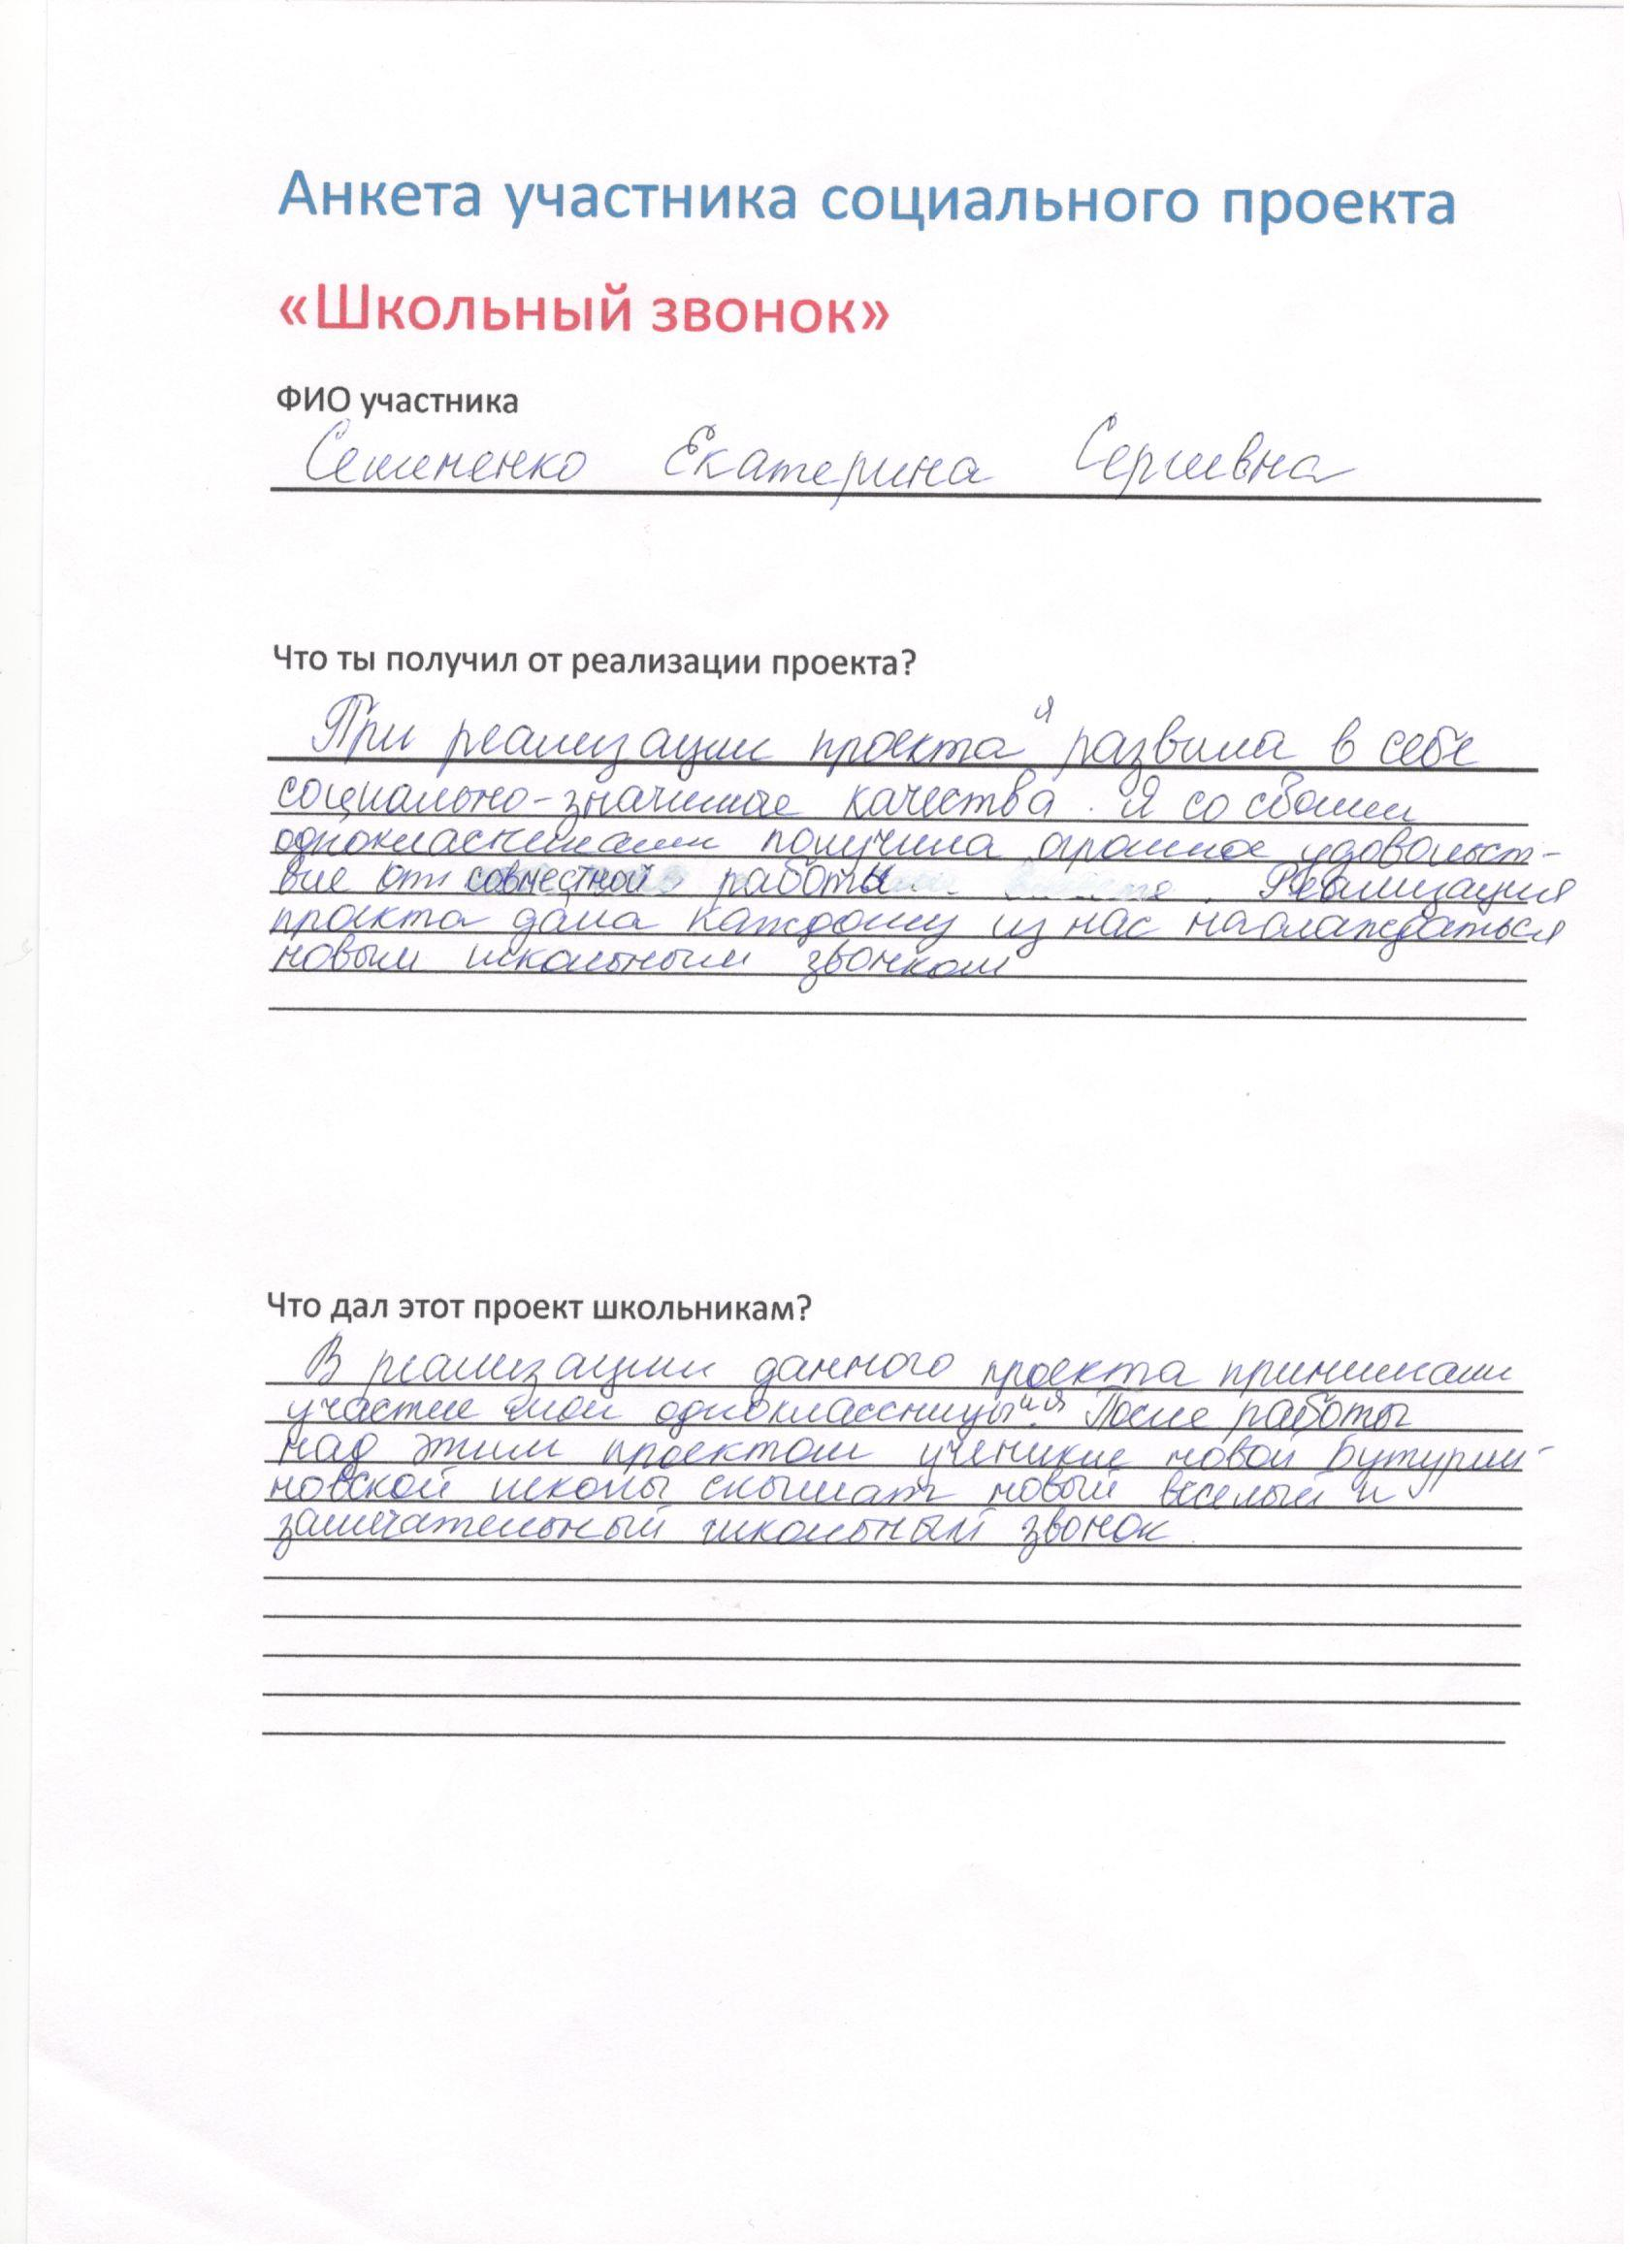 Анкета участника социального проекта
«Школьный звонок»
ФИО участника
Семененко Екатерина Сергивна
Что ты получил от реализации проекта?
При реализации проекта я развила в себе
социально-значимые качества. Я со своими
однокласниками получила огромное удовольст-
вие от совместной работы. Реализация
проекта дала каждому из нас наслаждаться
новым школьным звонком
Что дал этот проект школьникам?
В реализации данного проекта принимали
участие мои одноклассницы и я. После работы
над этим проектом ученики новой Бутурли-
новской школы слышат новый веселый и
замечательный школьный звонок.